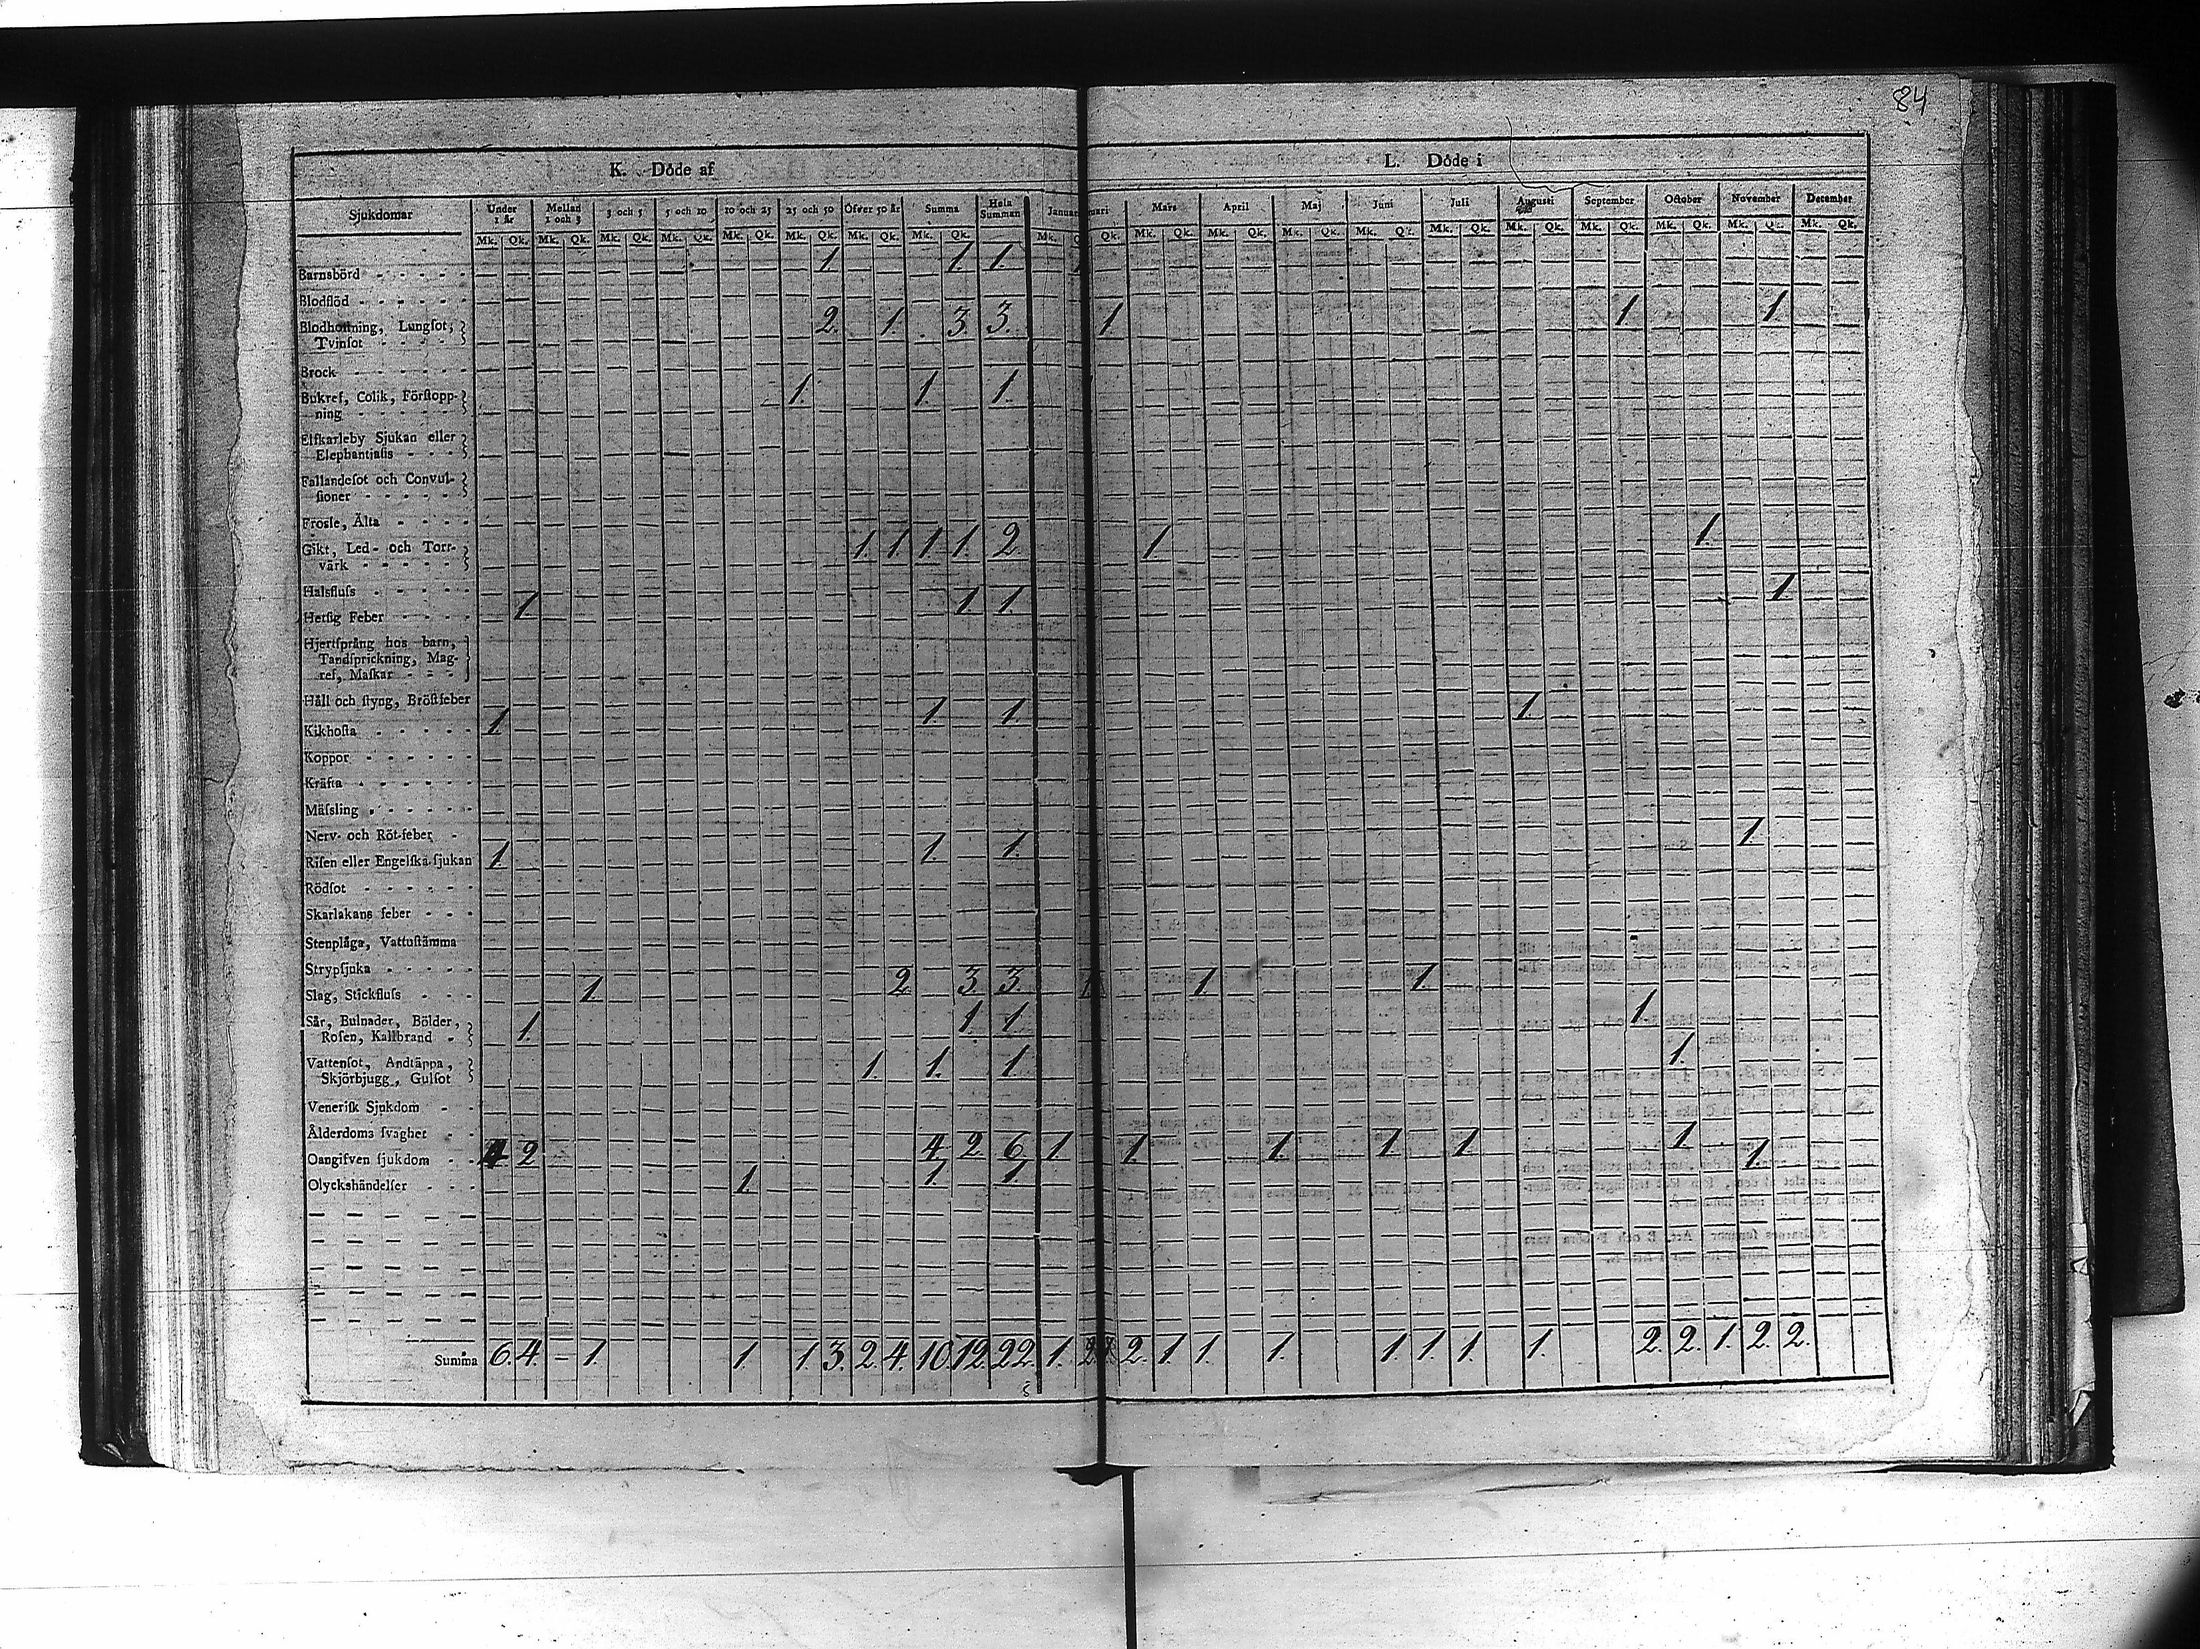 84
K. Döde af
L. Döde i
Sjukdomar Under 1 år Mellan 1 och 3 3 och 5 5 och 10 10 och 25 25 och 50 Öfver 50 år Summa Hela Summan Januari Mars April Maj Juni Juli Augusti September October November December
Mk. Qk. Mk. Qk. Mk. Qk. Mk. Qk. Mk. Qk. Mk. Qk. Mk. Qk. Mk. Qk. Mk. Qk. Mk. Qk. Mk. Qk. Mk. Qk. Mk. Qk. Mk. Qk. Mk. Qk. Mk. Qk. Mk. Qk. Mk. Qk. Mk. Qk.
Barnsbörd 1. 1. 1.
Blodflöd
Blodhostning, Lungsot, Tvinsot 2. 1. 3. 3. 1 1 1
Brock
Bukref, Colik, Förstoppning 1. 1. 1.
Elfkarleby Sjukan eller Elephantiasis
Fallandesot och Convulsioner
Frossle, Älta
Gikt, Led- och Torrvärk 1. 1. 1. 1. 2. 1. 1.
Halsfluss
Hetsig Feber 1. 1. 1. 1.
Hjertsprång hos barn, Tandsprickning, Magref, Maskar
Håll och styng, Bröstfeber
Kikhosta 1. 1. 1. 1.
Koppor
Kräfta
Mässling
Nerv- och Röt-feber
Risen eller Engelska sjukan 1. 1. 1. 1.
Rödsot
Skarlakans feber
Stenplåga, Vattustämma
Strypsjuka
Slag, Stickfluss 1. 2. 3. 3. 1. 1.
Sår, Bulnader, Bölder, Rosen, Kallbrand 1. 1. 1. 1.
Vattensot, Andtäppa, Skjörbjugg, Gulsot 1. 1. 1. 1.
Venerisk Sjukdom
Ålderdoms svaghet
Oangifven sjukdom 4 2 4. 2. 6. 1. 1. 1. 1. 1. 1. 1.
Olyckshändelser 1. 1. 1.
Summa 6. 4. – 1. 1. 1. 3. 2. 4. 10. 12. 22. 1. 2. 1. 1. 1. 1. 1. 1. 1. 2. 2. 1. 2. 2.